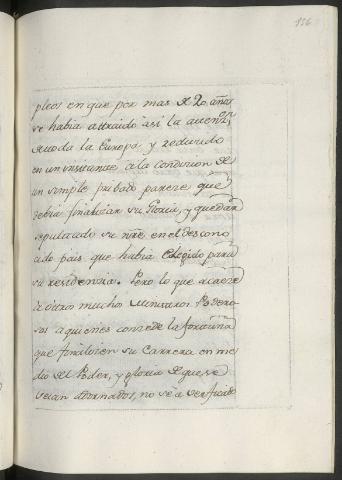 156
pleos en que por mas de 20 años
se habia attraido asi la atenon
de toda la Europa, y reducido
en un instante a la Condicion de
un simple pribado parece que
debia finalizar su Gloria, y quedar
sepultado su nre en el descono
cido pais que habia elegido para
su residencia. Pero lo que acaece
à otros muchos Ministros Podero
sos a quienes concede la fortuna
que finalicen su Carrera en me
dio del Poder, y gloria de que se
veian adornados, no se a verificado